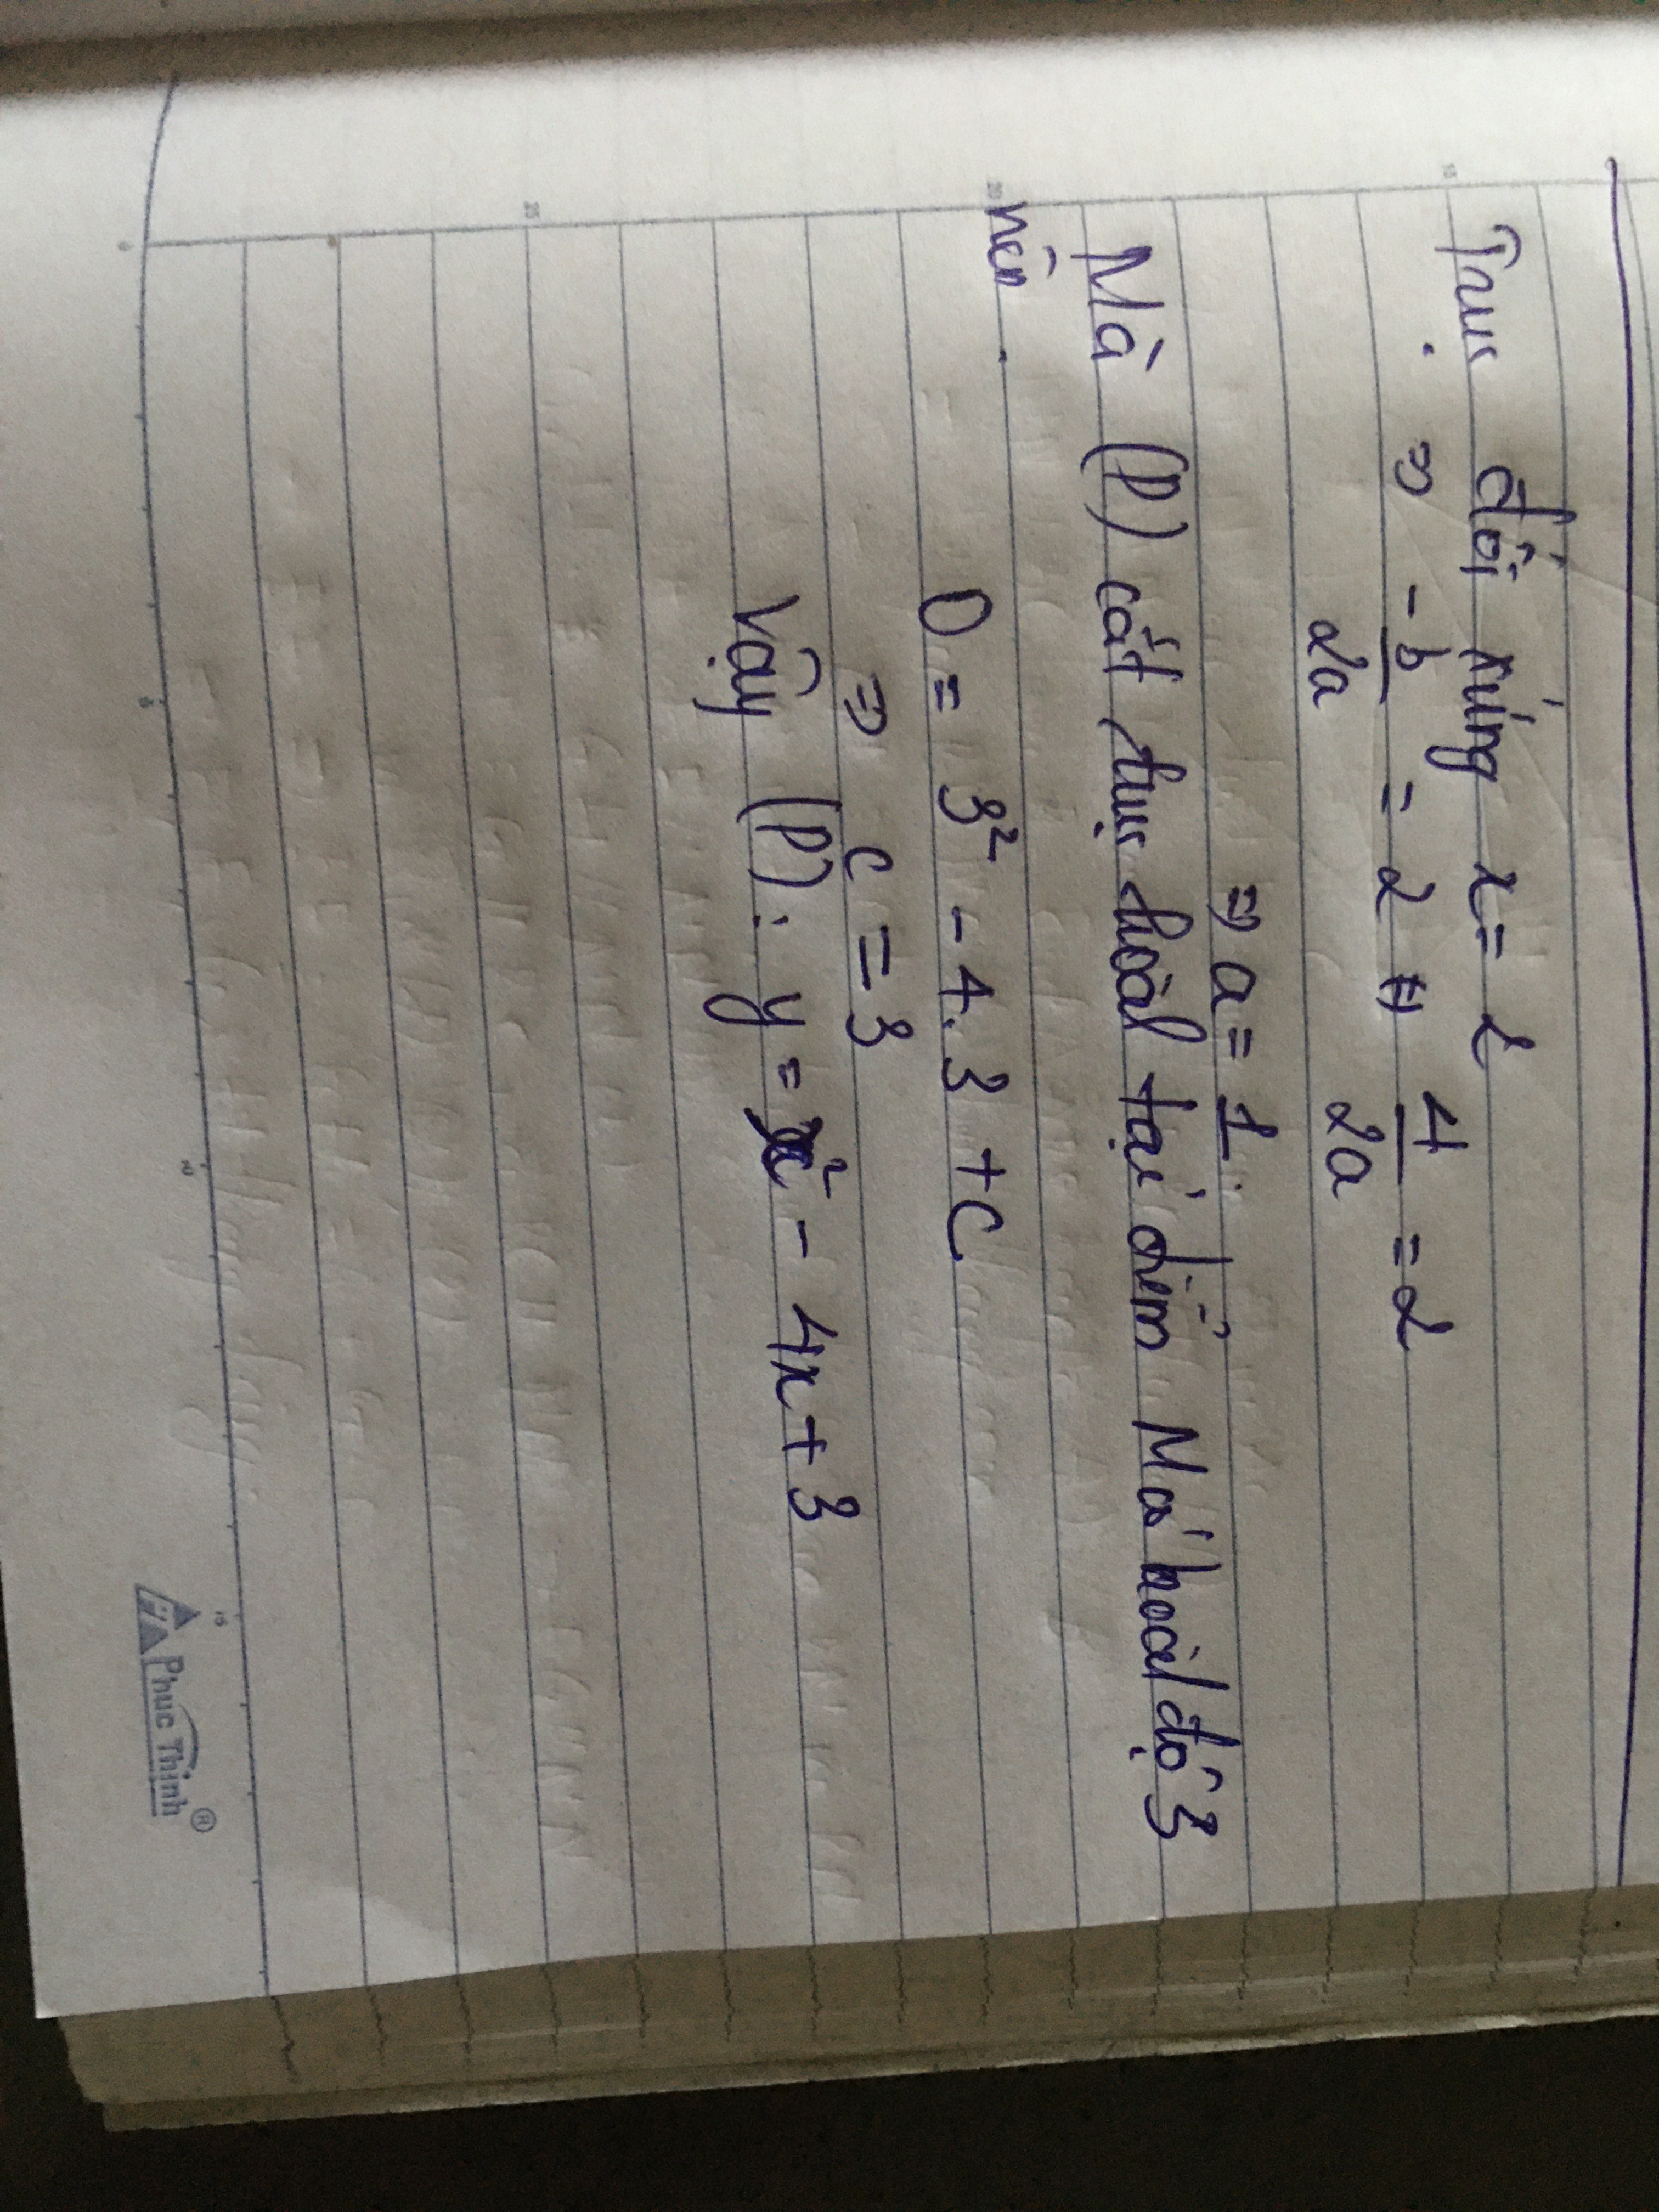 Trục đối xứng x = 2
⇒ -b/2a = 2 ⇔ 4/2a = 2
⇒ a = 1.
Mà (P) cắt trục hoành tại điểm M có hoành độ 3
nên
0 = 3² - 4.3 + C
⇒ C = 3
Vậy (P): y = x² - 4x + 3
Phuc Thinh®
15
20
25
0
5
10
15